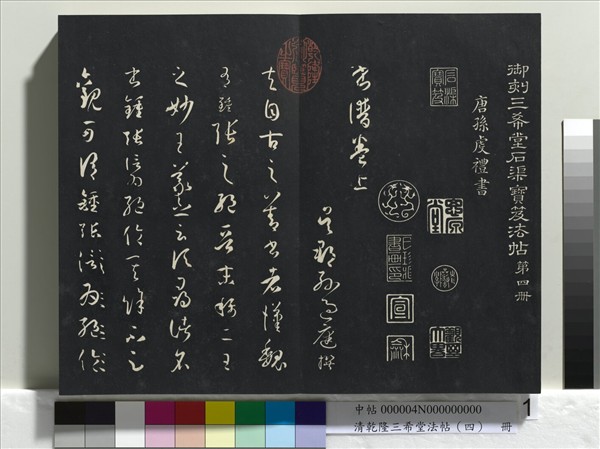 御刻三希堂石渠寶笈法帖 第四冊
唐孫虔禮書
石渠寶笈
宣
龢
書譜卷上
吳郡孫過庭撰
夫自古之善書者漢魏
有鍾張之絕晉末稱二王
之妙王羲之云頃尋諸名
書鍾張信為絕倫其餘不足
觀可謂鍾張
中帖 000004N000000000
清乾隆三希堂法帖（四） 冊
1